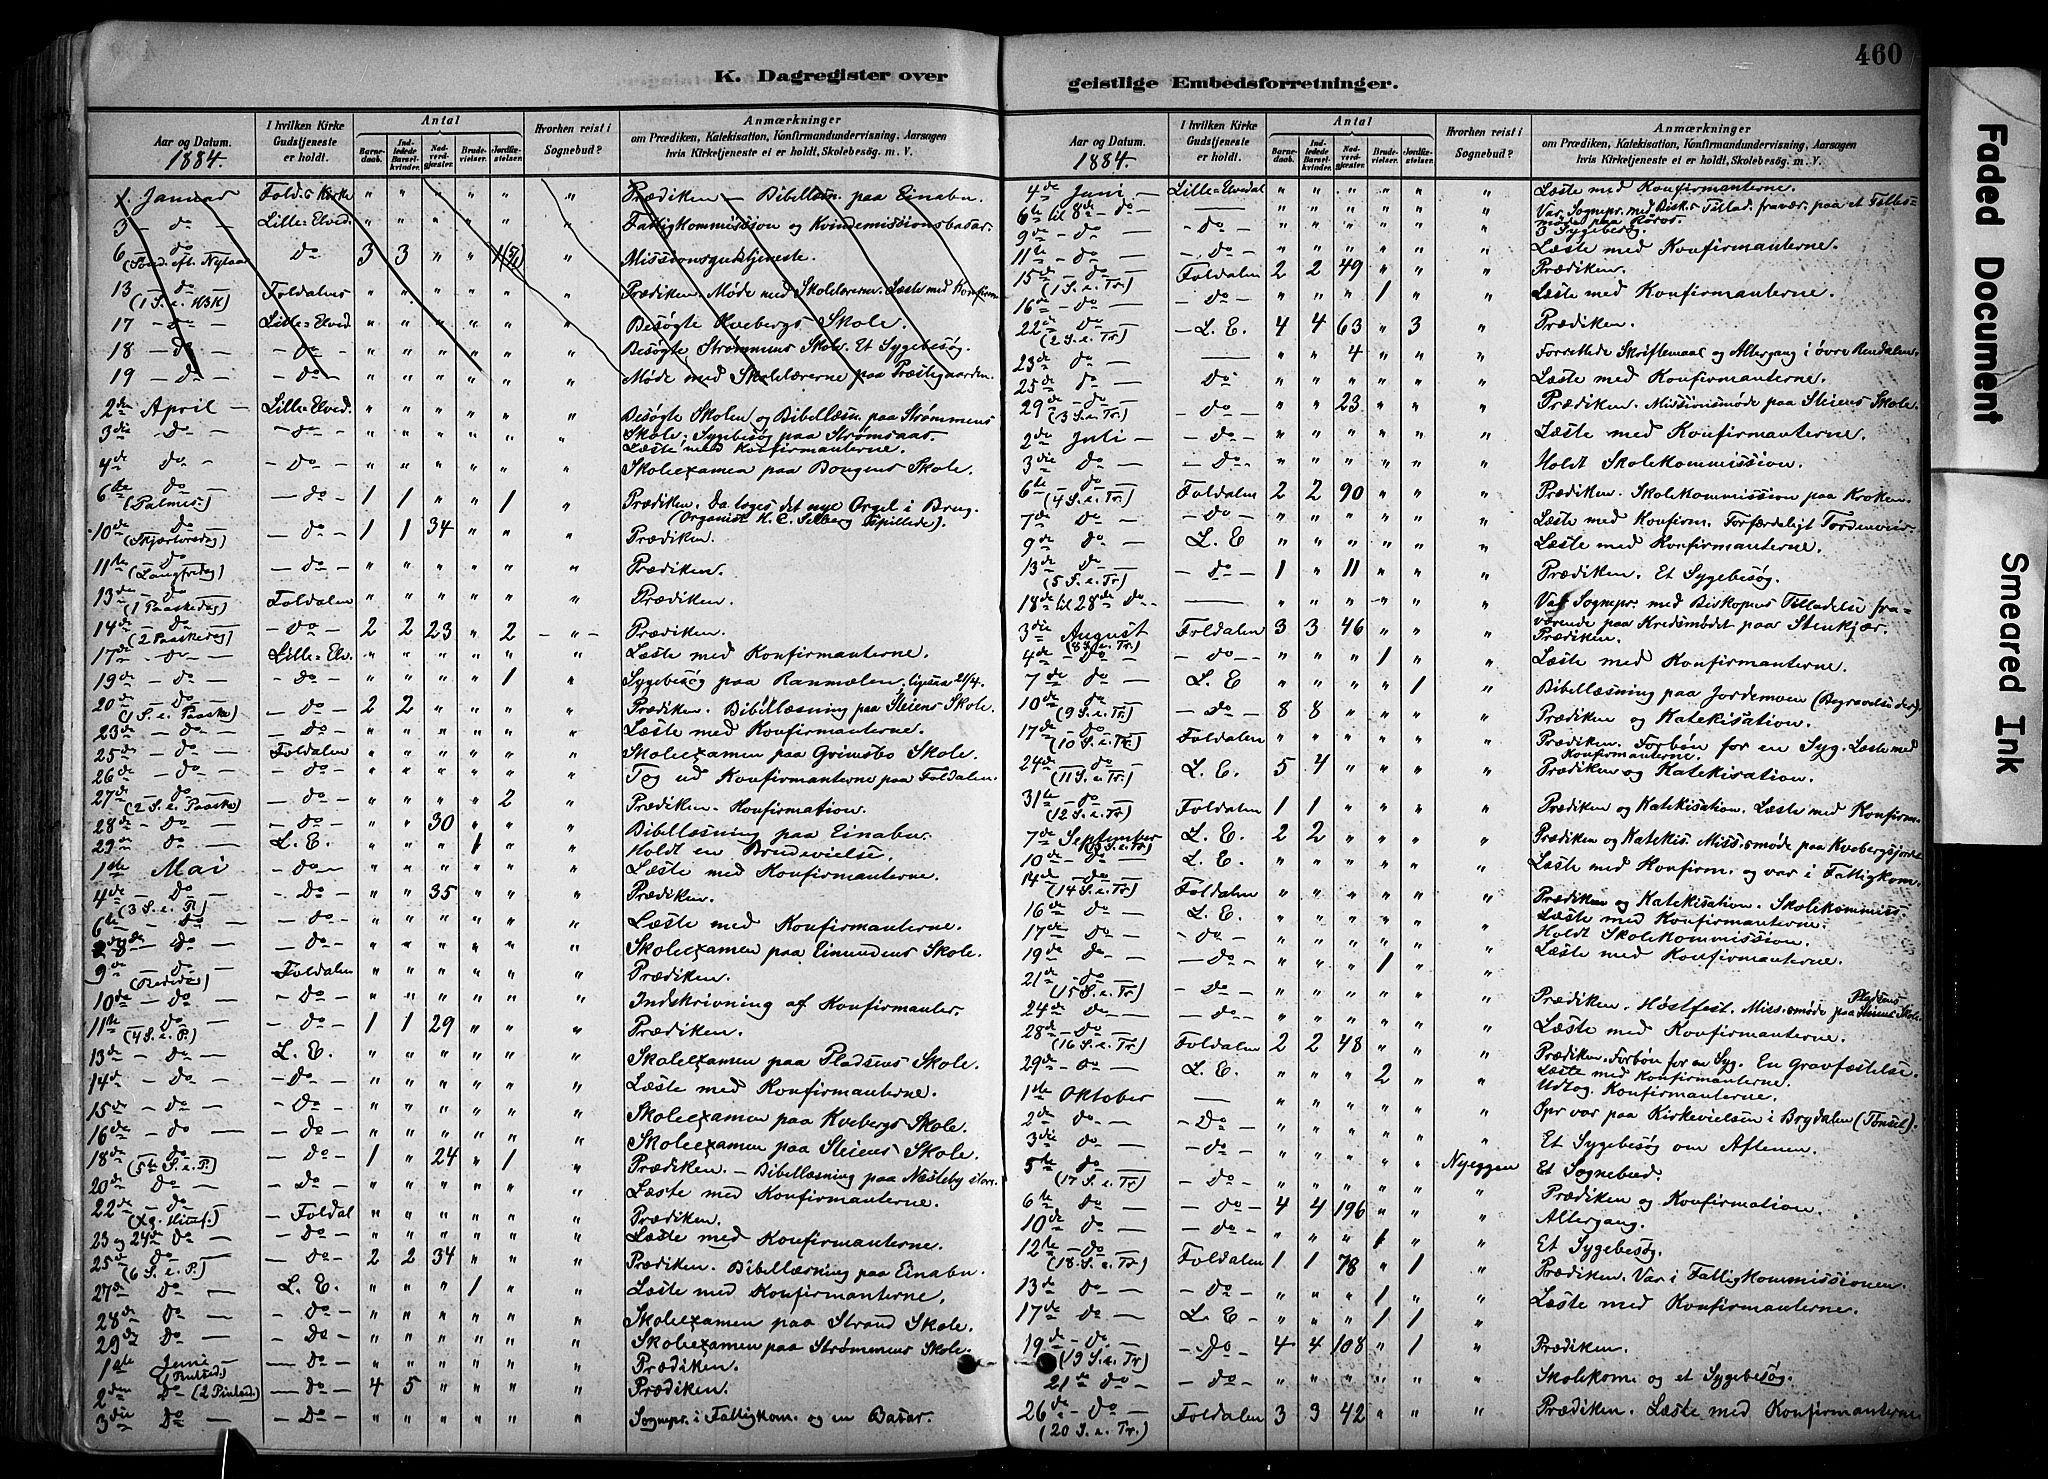 460
K. Dagregister over
geistlige Embedsforretninger.
Faded Document
Smeared Ink
Aar og Datum.
1884.
I hvilken Kirke Gudstjeneste er holdt.
Antal
Barnedaab.
Indledede Barselkvinder.
Nadverdgjæster.
Brudevielser.
Jordfæstelser.
Hvorhen reist i Sognebud?
Anmærkninger
om Prædiken, Katekisation, Konfirmandundervisning, Aarsagen
hvis Kirketjeneste ei er holdt, Skolebesøg. m. V.
1. Januar Folds Kirke " " " " " " Prædiken – Bibellæsn. paa Einabu.
3 – do – Lille-Elved. " " " " " " Fattigkommission og Kvindemissionsbasar.
6 do Do 3 3 " " " Missionsgudstjeneste.
(Sønd. eft. Nytaar)
13 – do – Foldalens " " " " " " Prædiken. Møde med Skolelærerne. Læste med Konfirm.
(1 S. e. H3K)
17 – do – Lille-Elved. " " " " " " Besøgte Kvebergs Skole.
18 – do – – do – " " " " " " Besøgte Strømmens Skole. Et Sygebesøg.
19 – do – – do – " " " " " " Møde med Skolelærerne paa Præstegaarden.
2den April – Lille-Elved. " " " " " " Besøgte Skolen og Bibellæsn. paa Strømmens
3die – do – – do – " " " " " " Skole; Sygebesøg paa Strømsaas.
Læste med Konfirmanterne.
4de do – – Do – " " " " " " Skoleexamen paa Bongens Skole.
6te – do – – do – 1 1 " " 1 " Prædiken. Da toges det nye Orgel i Brug.
(Palmes.) (Organist H. C. Selberg spillede).
10de do – do – 1 1 34 " " " Prædiken.
(Skjærtorsdag)
11te do – do – " " " " " " Prædiken.
(Langfredag)
13de – do – Foldalen " " " " " " Prædiken.
(1 Paaskedag)
14de – do – – do – 2 2 23 " 2 – " – Prædiken.
(2 Paaskedag)
17de – do – Lille-Elv. " " " " " " Læste med Konfirmanterne.
19de – do – – do – " " " " 1 " Sygebesøg paa Ranmælen. ligesaa 21/4.
20de – do – – do – 2 2 " " " " Prædiken. Bibellæsning paa Steiens Skole.
(1 S. e. Paaske)
23de – do – – do – " " " " " " Læste med Konfirmanterne.
25de do – Foldalen " " " " " " Skoleexamen paa Grimsbo Skole.
26de – do – – do – " " " " " " Tog ud Konfirmanterne paa Foldalen.
27de – do – – do – " " " " 2 " Prædiken – Konfirmation.
(2 S. e. Paaske)
28de – do – – do – " " 30 " " " Bibellæsning paa Einabu.
29de do – L. E. " " " 1 " " Holdt en Brudevielse.
1ste Mai – do – " " " " " " Læste med Konfirmanterne.
4de – do – – Do – " " 35 " " " Prædiken.
(3 S. e. P.)
6te – do – – do – " " " " " " Læste med Konfirmanterne.
– do – – do – " " " " " " Skoleexamen paa Eimundens Skole.
9de – do – Foldalen " " " " " " Prædiken.
(Bededag)
10de – do – – do – " " " " " " Indskrivning af Konfirmanter.
11te – do – – do – 1 1 29 " " " Prædiken.
(4 S. e. P.)
13de – do – L. E. " " " " " " Skoleexamen paa Pladsens Skole.
14de – do – – Do – " " " " " " Læste med Konfirmanterne.
15de – do – – do – " " " " " " Skoleexamen paa Kvebergs Skole.
16de – do – – do – " " " " " " Skoleexamen paa Steiens Skole.
18de – do – – do – 1 " 24 " 1 " Prædiken. – Bibellæsning paa Næsteby store.
(5te S. e. P.)
20de – do – – do – " " " " " " Læste med Konfirmanterne.
22de – do – – Foldal " " " " " " Prædiken.
(Kr. Himf.)
23 og 24de do – – Do – " " " " " " Læste med Konfirmanterne.
25de do – – do – 2 2 34 " " " Prædiken. Bibellæsning paa Einabu.
(6 S. e. P.)
27de do – L. E. " " " 1 " " Læste med Konfirmanterne.
28de do – – do – " " " " " " Skoleexamen paa Strand Skole.
29de do – – Do – " " " " " " Skoleexamen paa Strømmens Skole.
1ste Juni – – do – " " " " " " Prædiken.
(1 Pintsed.)
2den Do (2 Pintsed.) – do – 4 5 " " " " Prædiken.
3die Do – – Do – " " " " " " Sognepr. i Fattigkom. og en Basar.
Aar og Datum.
1884.
I hvilken Kirke Gudstjeneste er holdt.
Antal
Barnedaab.
Indledede Barselkvinder.
Nadverdgjæster.
Brudevielser.
Jordfæstelser.
Hvorhen reist i Sognebud?
Anmærkninger
om Prædiken, Katekisation, Konfirmandundervisning, Aarsagen
hvis Kirketjeneste ei er holdt, Skolebesøg. m. V.
4de Juni – Lille-Elvedal " " " " " " Læste med Konfirmanterne.
6te til 8de – do – " " " " " " Var Sognepr. med Bisks Tillad. fravær. paa et Fælles-
møde paa Røros.
9de – do – – Do – " " " " " " 3 Sygebesøg.
11te – do – – do – " " " " " " Læste med Konfirmanterne.
15de – do – Foldalen 2 2 49 " " " Prædiken.
(1 S. e. Tr.)
16de – do – – do – " " " 1 " " Læste med Konfirmanterne.
22de do – L. E. 4 4 63 " 3 " Prædiken.
(2 S. e. Tr.)
23de do – — " " 4 " " " Forrettede Skriftemaal og Altergang i øvre Rendalen.
25de do – Do – " " " " " " Læste med Konfirmanterne.
29de – do – – do – " " 23 " " " Prædiken. Missionsmøde paa Steiens Skole.
(3 S. e. Tr.)
2de Juli – – do – " " " " " " Læste med Konfirmanterne.
3die do – – do – " " " " " " Holdt Skolekommission.
6te – do – Foldalen 2 2 90 " " " Prædiken. Skolekommission paa Kroken.
(4 S. e. Tr.)
7de do – – do – " " " " " " Læste med Konfirm. Forfærdeligt Tordenveir.
9de do – L. E " " " " " " Læste med Konfirmanterne.
13de – do – – do – 1 " 11 " " " Prædiken. Et Sygebesøg.
(5 S. e. Tr.)
18de til 28de do – — " " " " " " Var Sognepr. med Biskopens Tilladelse fra-
værende paa Kredsmødet paa Stenkjær.
3die August Foldalen 3 3 46 " " " Prædiken.
(8 S. e. Tr.)
4de – do – – do – " " " 1 " " Læste med Konfirmanterne.
7de do – L. E " " " " 1 " Bibellæsning paa Jordemoen (Begravelse der).
10de – do – – do – 8 8 " " " " Prædiken og Katekisation.
(9 S. e. Tr.)
17de – do – Foldalen " " " " " " Prædiken. Forbøn for en Syg. Læste med
(10 S. e. Tr.) Konfirmanterne.
24de – do – L. E. 5 4 " " " " Prædiken og Katekisation.
(11 S. e. Tr.)
31te – do – Foldalen 1 1 " " " " Prædiken og Katekisation. Læste med Konfirm.
(12 S. e. Tr.)
7de September L. E. 2 2 " " " " Prædiken og Katekis. Miss.smøde paa Kvebergsjordet
(13 S. e. Tr.)
10de – do – L. E. " " " " " " Læste med Konfirm. og var i Fattigkom.
14de – do – Foldalen " " " " " " Prædiken og Katekisation. Skolekommiss.
(14 S. e. Tr.)
16de do – L. E. " " " " " " Læste med Konfirmanterne.
17de do – – do – " " " " " " Holdt Skolekommission.
19de do – – do – " " " 1 " " Læste med Konfirmanterne.
21de – do – do – " " " " " " Prædiken. Høstfest. Miss.smøde paa Steiens Skole.
Pladsens
(15 S. e. Tr.)
24de do – – do – " " " " " " Læste med Konfirmanterne.
28de – do – Foldalen 2 2 48 " " " Prædiken. Forbøn for en Syg. En Gravfæstelse.
(16 S. e. Tr.)
29de – do – L. E. " " " 2 " " Læste med Konfirmanterne.
Udtog Konfirmanterne.
1ste Oktober — " " " " " " Spr var paa Kirkevielsen i Brydalen (Tønset).
2de do – – Do – " " " " " " Et Sygebesøg om Aftenen.
3die do – – do – " " " " " Nyeggen Et Sognebud.
5te do – – do – " " " " " " Prædiken og Konfirmation.
(17 S. e. Tr.)
6te do – – do – 4 4 196 " " " Altergang.
10de do – – do – " " " 1 " " Et Sygebesøg.
12te – do – Foldalen 1 1 78 " 1 " Prædiken. Var i Fattigkommissionen.
(18 S. e. Tr.)
13de do – – do – " " " 1 " " Læste med Konfirmanterne.
17de do – L. E " " " 1 1 "
19de – do – – Do – 4 4 108 " 1 " Prædiken.
(19 S. e. Tr.)
21de do – – do – " " " " " " Skolekom. og et Sygebesøg.
26de – do – Foldalen 3 3 42 " " " Prædiken. Læste med Konfirmanterne
(20 S. e. Tr.)